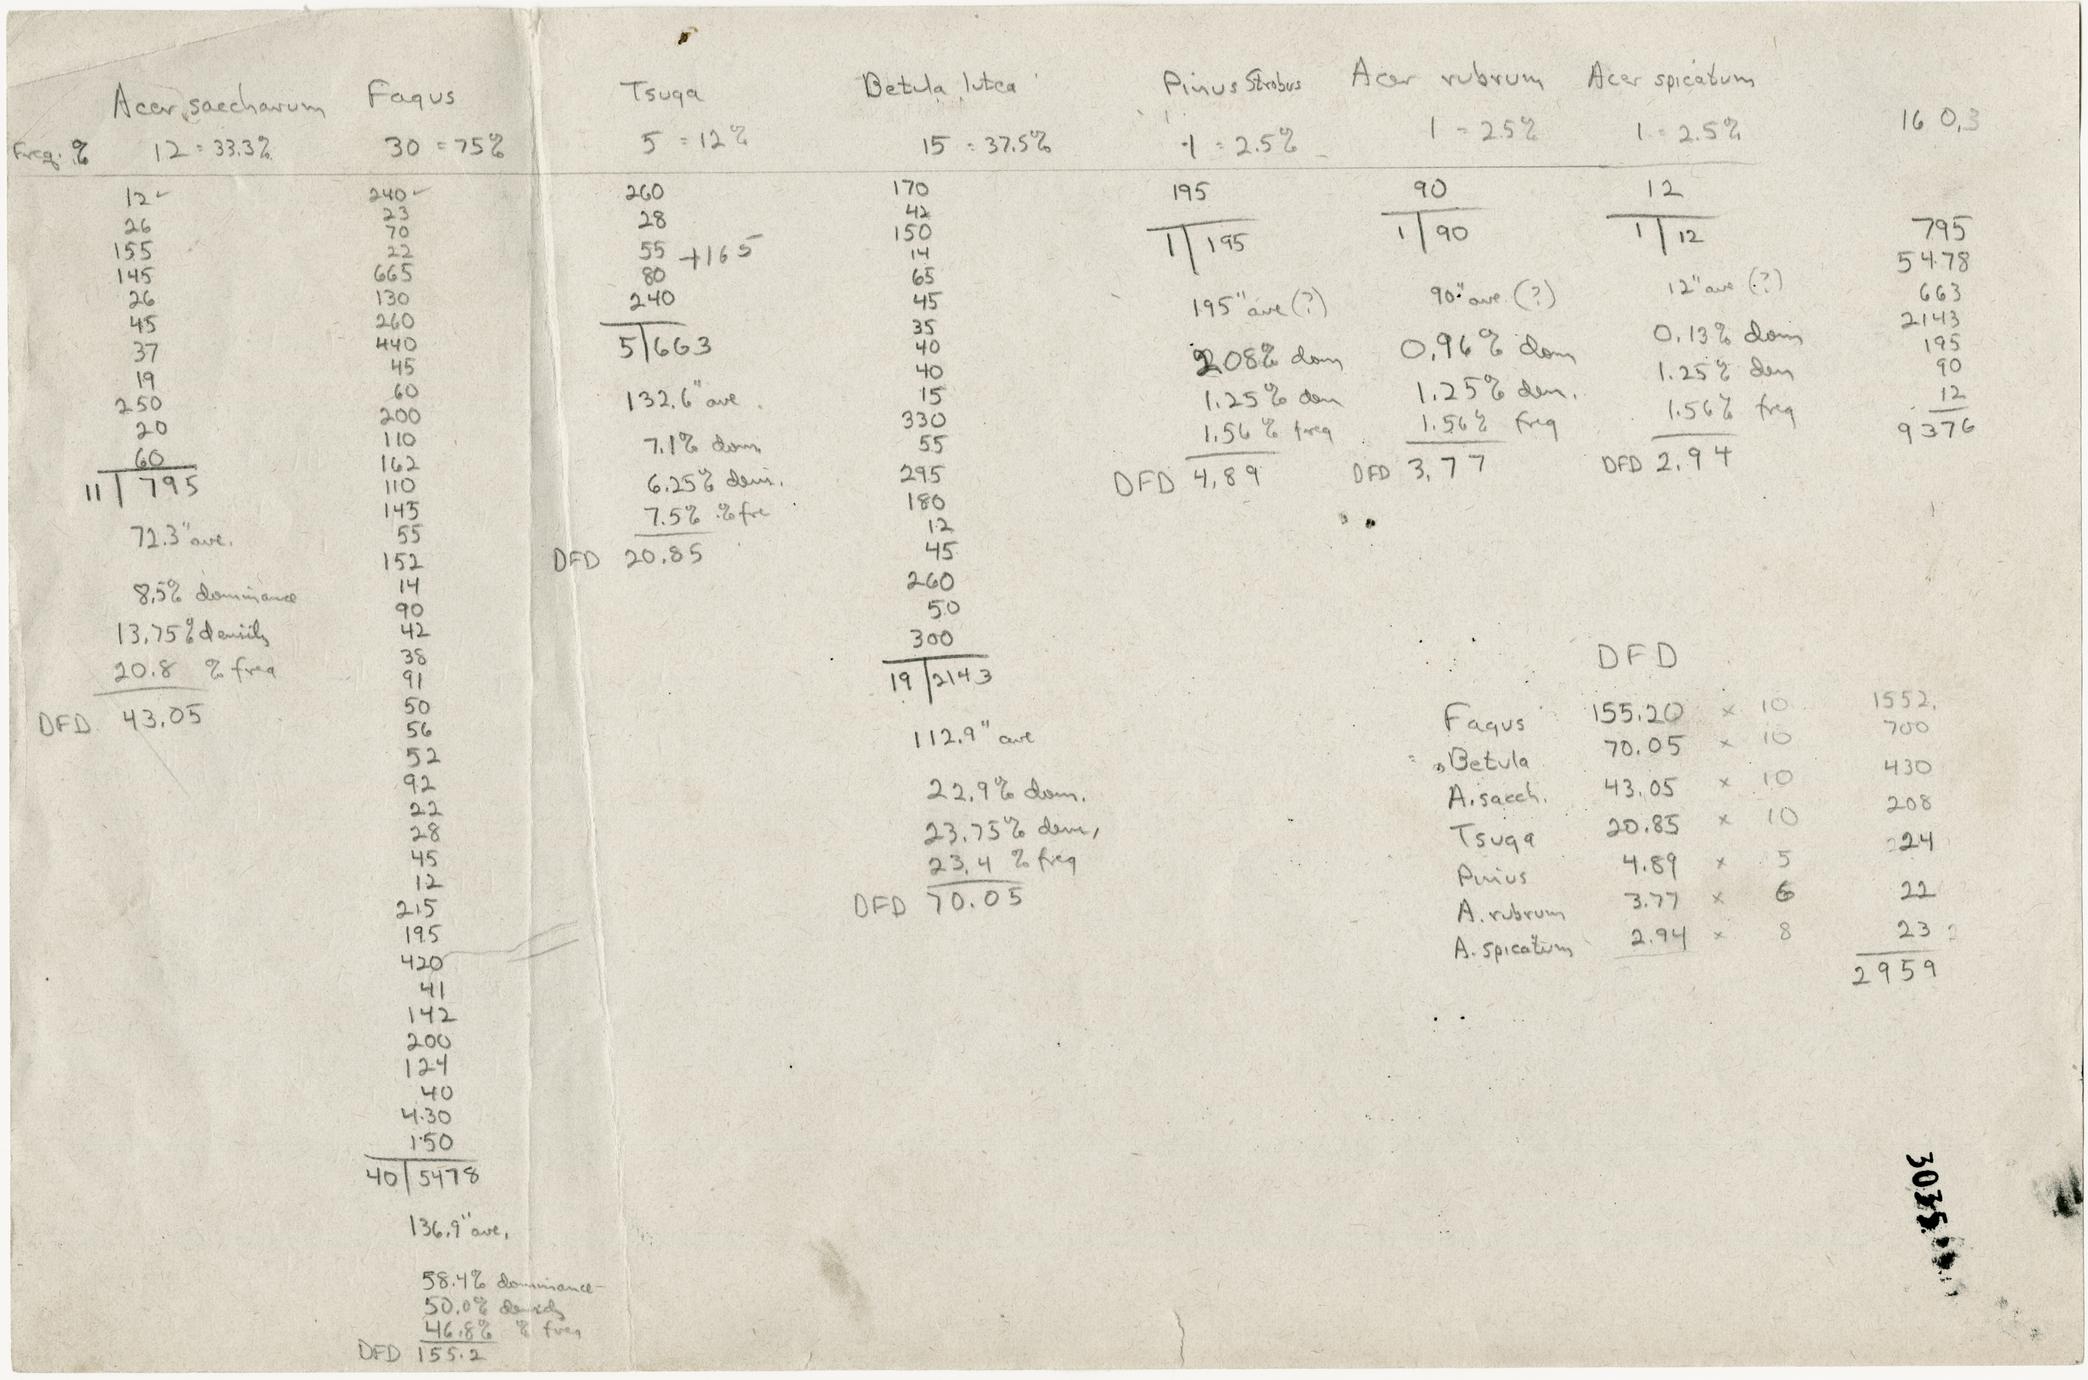 Acer saccharum
Freq. % 12 = 33.3%
12
26
155
145
26
45
37
19
250
20
60
11 | 795
72.3" ave.
8.5% dominance
13.75% density
20.8 % freq
DFD 43.05
Fagus
30 = 75%
240
23
70
22
665
130
260
440
45
60
200
110
162
110
145
55
152
14
90
42
38
91
50
56
52
92
22
28
45
12
215
195
420
41
142
200
124
40
430
150
40 | 5478
136.9" ave.
58.4% dominance
50.0% density
46.8% % freq
DFD 155.2
Tsuga
5 = 12%
260
28
55 +165
80
240
5 | 663
132.6" ave.
7.1% dom
6.25% den.
7.5% % fre
DFD 20.85
Betula lutea
15 = 37.5%
170
42
150
14
65
45
35
40
40
15
330
55
295
180
12
45
260
50
300
19 | 2143
112.9" ave
22.9% dom.
23.75% den.
23.4 % freq
DFD 70.05
Pinus Strobus
1 = 2.5%
195
1 | 195
195" ave (?)
2.08% dom
1.25% den
1.56% freq
DFD 4.89
Acer rubrum
1 = 2.5%
90
1 | 90
90" ave (?)
0.96% dom
1.25% den.
1.56% freq
DFD 3.77
Acer spicatum
1 = 2.5%
12
1 | 12
12" ave (?)
0.13% dom
1.25% den
1.56% freq
DFD 2.94
160.3
795
5478
663
2143
195
90
12
9376
DFD
Fagus 155.20 x 10 1552.
Betula 70.05 x 10 700
A. sacch. 43.05 x 10 430
Tsuga 20.85 x 10 208
Pinus 4.89 x 5 24
A. rubrum 3.77 x 6 22
A. spicatum 2.94 x 8 23
2959